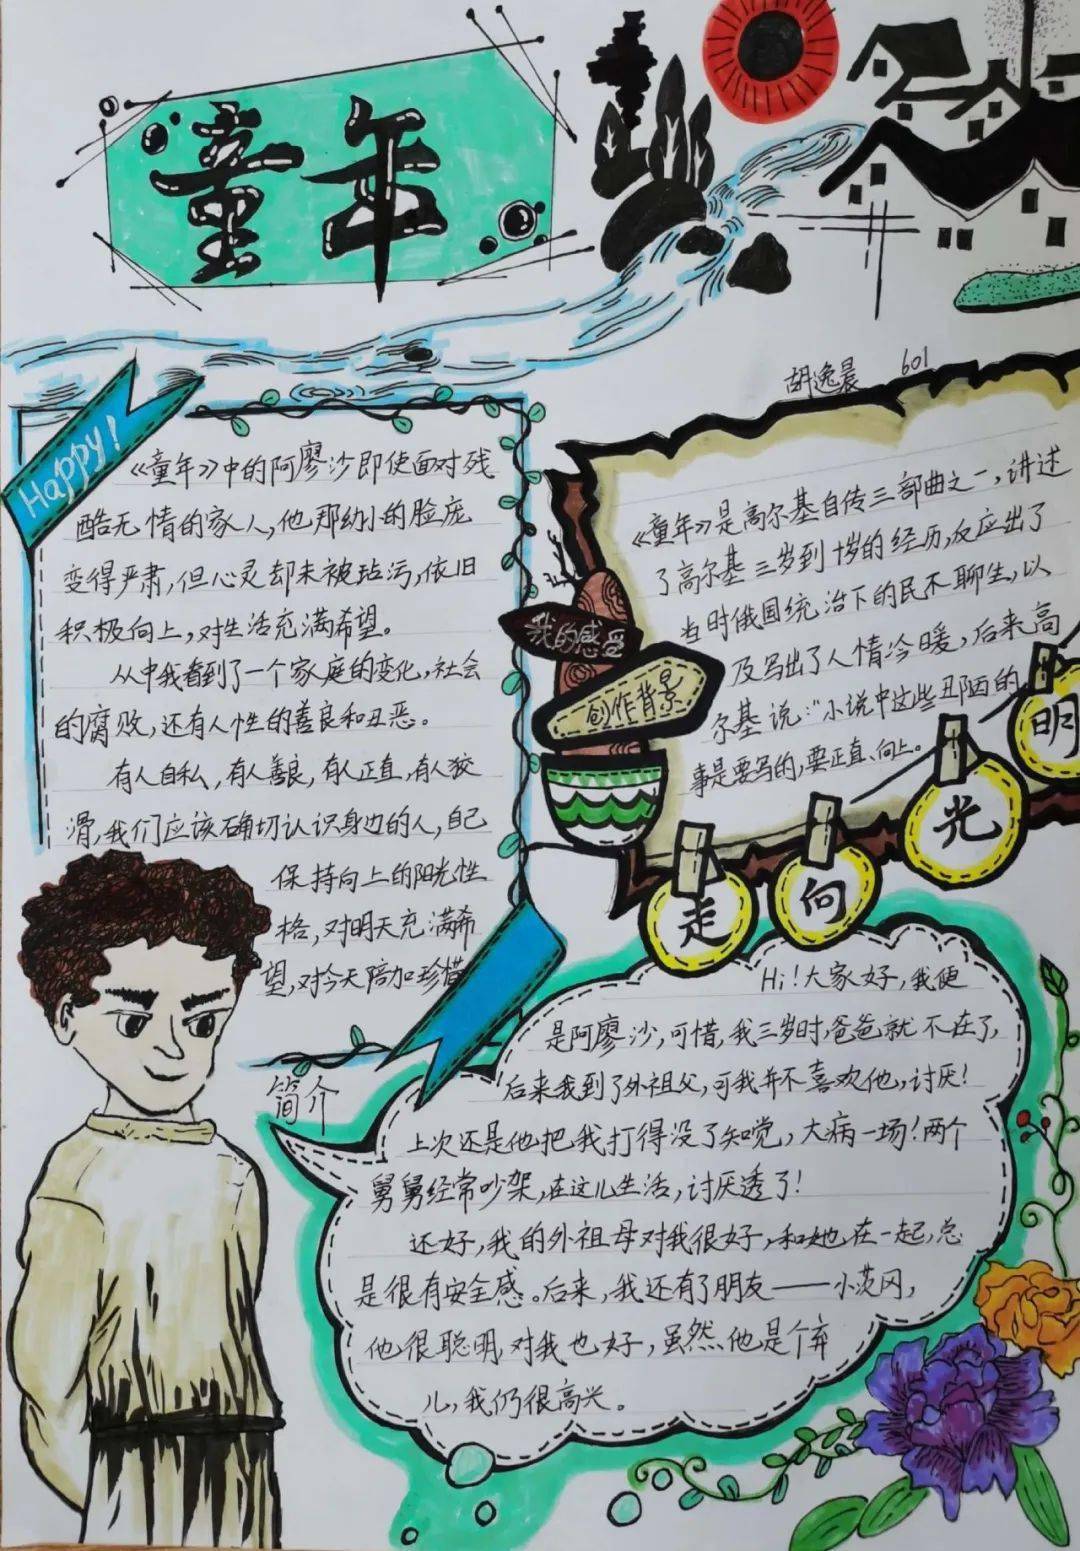 童年
胡逸晨 601
Happy!
《童年》中的阿廖沙即使面对残
酷无情的家人,他那幼小的脸庞
变得严肃,但心灵却未被玷污,依旧
积极向上,对生活充满希望。
从中我看到了一个家庭的变化,社会
的腐败,还有人性的善良和丑恶。
有人自私,有人善良,有人正直,有人狡
滑,我们应该确切认识身边的人,自己
保持向上的阳光性
格,对明天充满希
望,对今天陪加珍惜
我的感受
创作背景
《童年》是高尔基自传三部曲之一,讲述
了高尔基三岁到十岁的经历,反应出了
当时俄国统治下的民不聊生,以
及写出了人情冷暖,后来高
尔基说:"小说中这些丑陋的
事是要写的,要正直、向上。
走向光明
简介
Hi!大家好,我便
是阿廖沙,可惜,我三岁时,爸爸就不在了,
后来我到了外祖父,可我并不喜欢他,讨厌!
上次还是他把我打得没了知觉,大病一场!两个
舅舅经常吵架,在这儿生活,讨厌透了!
还好,我的外祖母对我很好,和她在一起,总
是很有安全感。后来,我还有了朋友——小茨冈,
他很聪明,对我也好,虽然他是个弃
儿,我们很高兴。